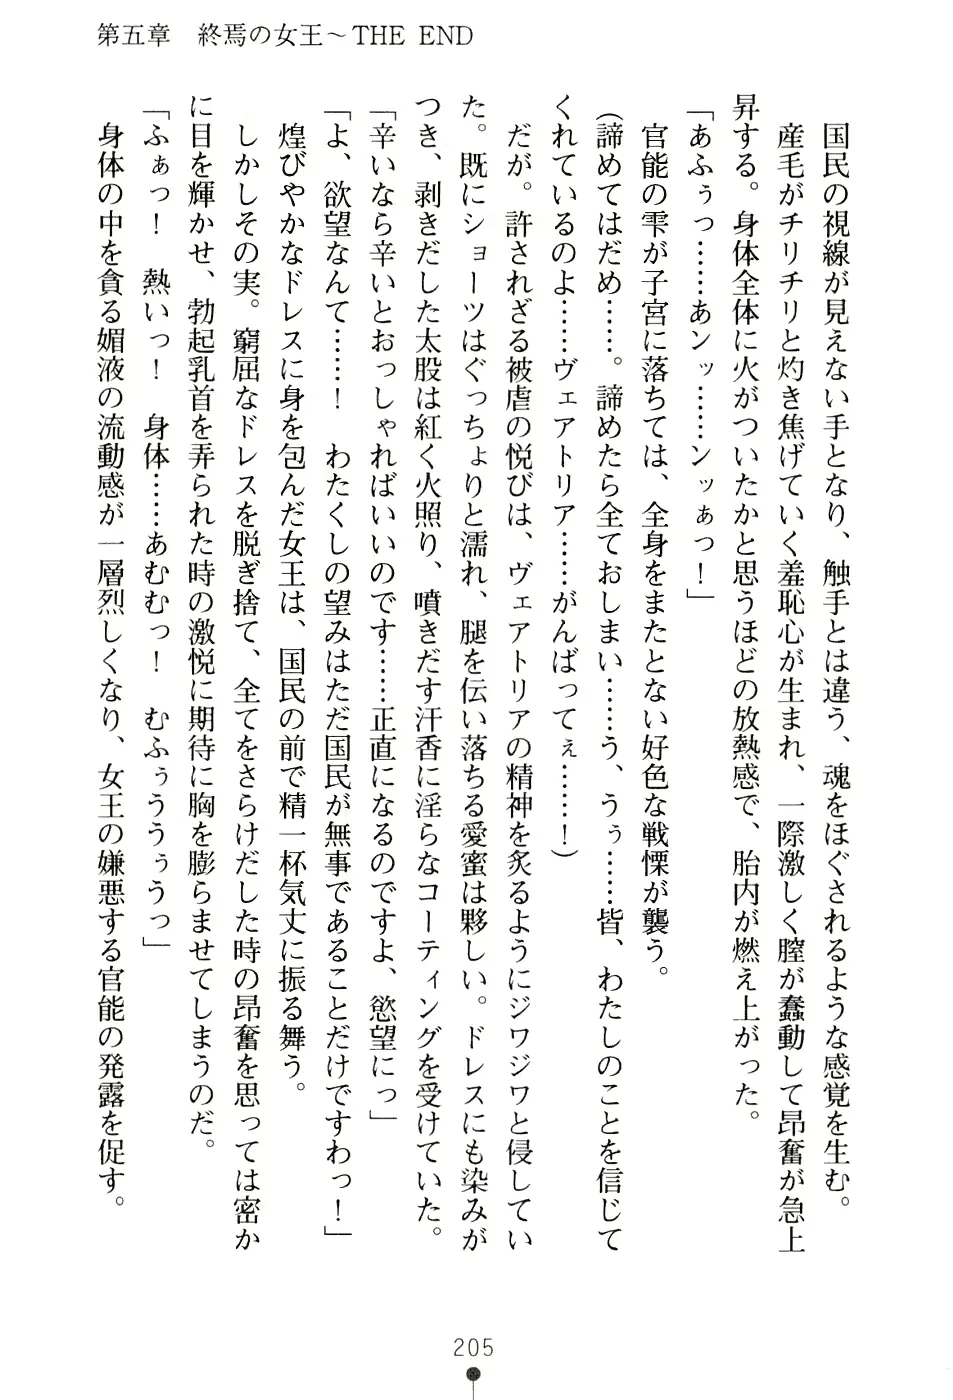 第五章　終焉の女王～THE END
国民の視線が見えない手となり、触手とは違う、魂をほぐされるような感覚を生む。
産毛がチリチリと灼き焦げていく羞恥心が生まれ、一際激しく膣が蠢動して昂奮が急上
昇する。身体全体に火がついたかと思うほどの放熱感で、胎内が燃え上がった。
「あふぅっ……あンッ……ンッぁっ！」
官能の雫が子宮に落ちては、全身をまたとない好色な戦慄が襲う。
(諦めてはだめ……。諦めたら全ておしまい……う、うぅ……皆、わたしのことを信じて
くれているのよ……ヴェアトリア……がんばってぇ……！)
だが。許されざる被虐の悦びは、ヴェアトリアの精神を炙るようにジワジワと侵してい
た。既にショーツはぐっちょりと濡れ、腿を伝い落ちる愛蜜は夥しい。ドレスにも染みが
つき、剥きだした太股は紅く火照り、噴きだす汗香に淫らなコーティングを受けていた。
「辛いなら辛いとおっしゃればいいのです……正直になるのですよ、慾望にっ」
「よ、欲望なんて……！　わたくしの望みはただ国民が無事であることだけですわっ！」
煌びやかなドレスに身を包んだ女王は、国民の前で精一杯気丈に振る舞う。
しかしその実。窮屈なドレスを脱ぎ捨て、全てをさらけだした時の昂奮を思っては密か
に目を輝かせ、勃起乳首を弄られた時の激悦に期待に胸を膨らませてしまうのだ。
「ふぁっ！　熱いっ！　身体……あむむっ！　むふぅううぅうっ」
身体の中を貪る媚液の流動感が一層烈しくなり、女王の嫌悪する官能の発露を促す。
205